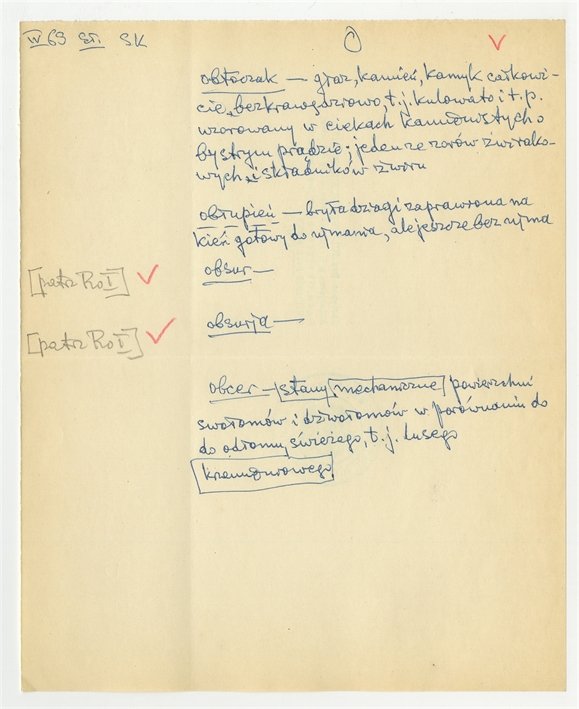 IV 69 St. SK
O
obtoczak — głaz, kamień, kamyk całkowi-
cie, bezkrawędziowo, t.j. kulowato i t.p.
w ciekach kamienistych o
bystrym prądzie; jeden ze
wych i składników żwiru
obłupień — bryła dziagi zaprawiona na
rdzeń gotowy do ujmania, ale jeszcze bez ujma
[patrz Ro I]
obsur —
[patrz Ro I]
obsurja —
obcer — stany mechaniczne powierzchni
swołomów i dzwołomów w porównaniu do
do odłomu świeżego, t.j. łusego